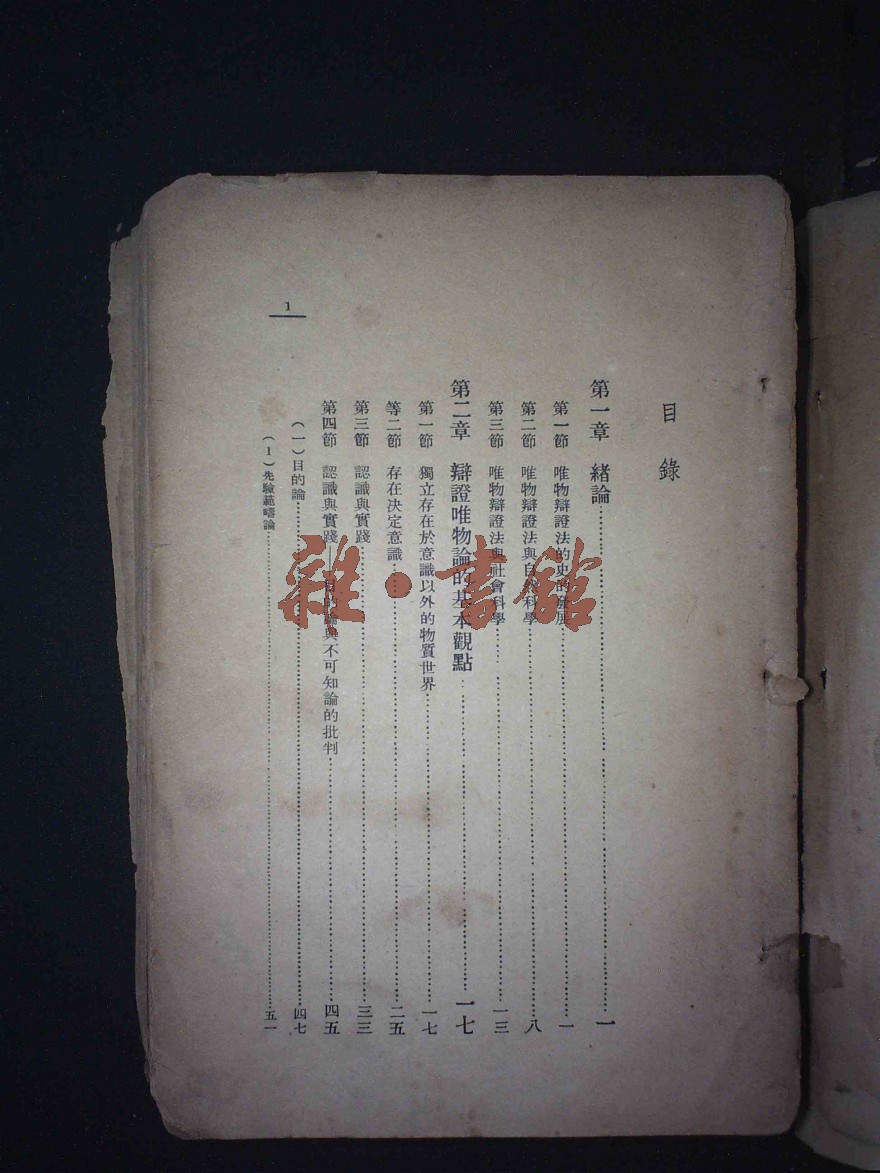 目錄
第一章 緒論……一
第一節 唯物辯證法的史的發展……一
第二節 唯物辯證法與自然科學……八
第三節 唯物辯證法與社會科學……一三
第二章 辯證唯物論的基本觀點……一七
第一節 獨立存在於意識以外的物質世界……一七
等二節 存在決定意識……二五
第三節 認識與實踐……三三
第四節 認識與實踐——目的論與不可知論的批判……四五
(一)目的論……四七
(1)先驗範疇論……五一
1
雜·書館